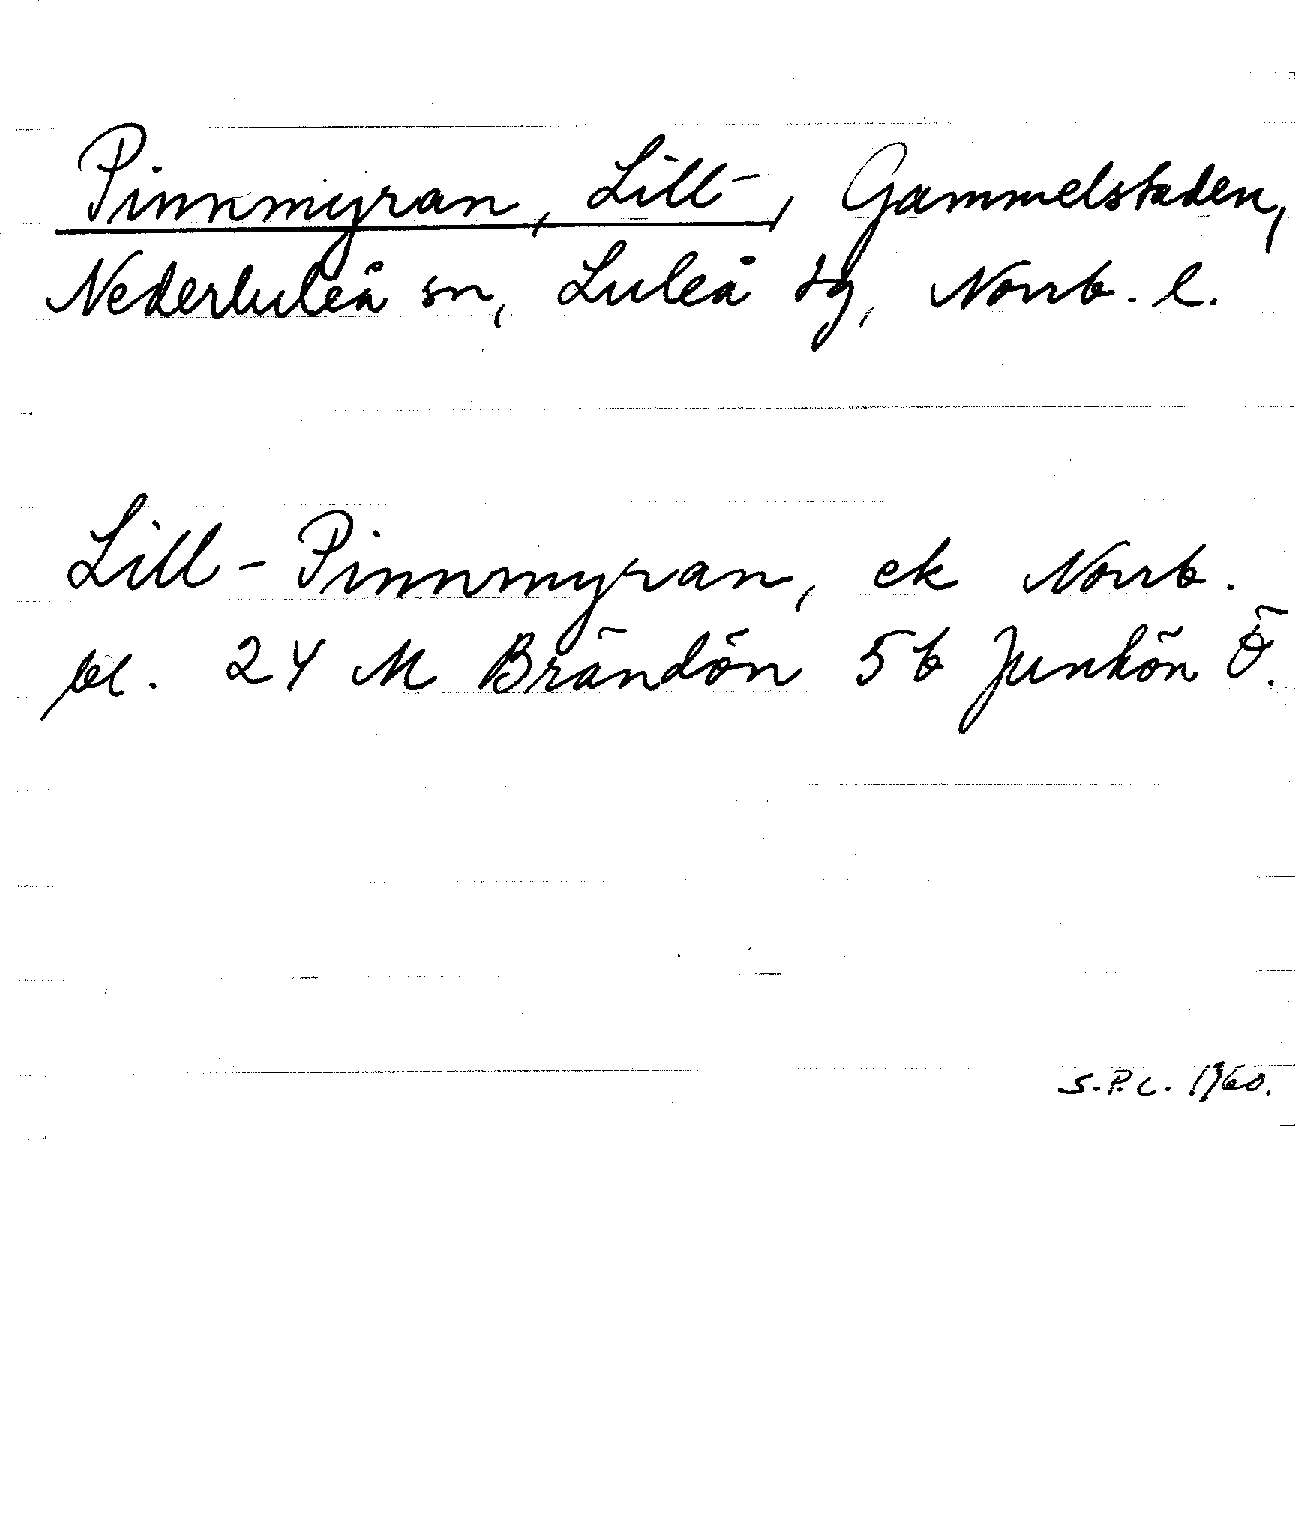 Pinnmyran, Lill-, Gammelstaden,
Nederluleå sn, Luleå tg, Norrb. l.
Lill-Pinnmyran, ek Norrb.
bl. 24 M Brändön 5 b Junkön Ö.
S.P.C. 1960.